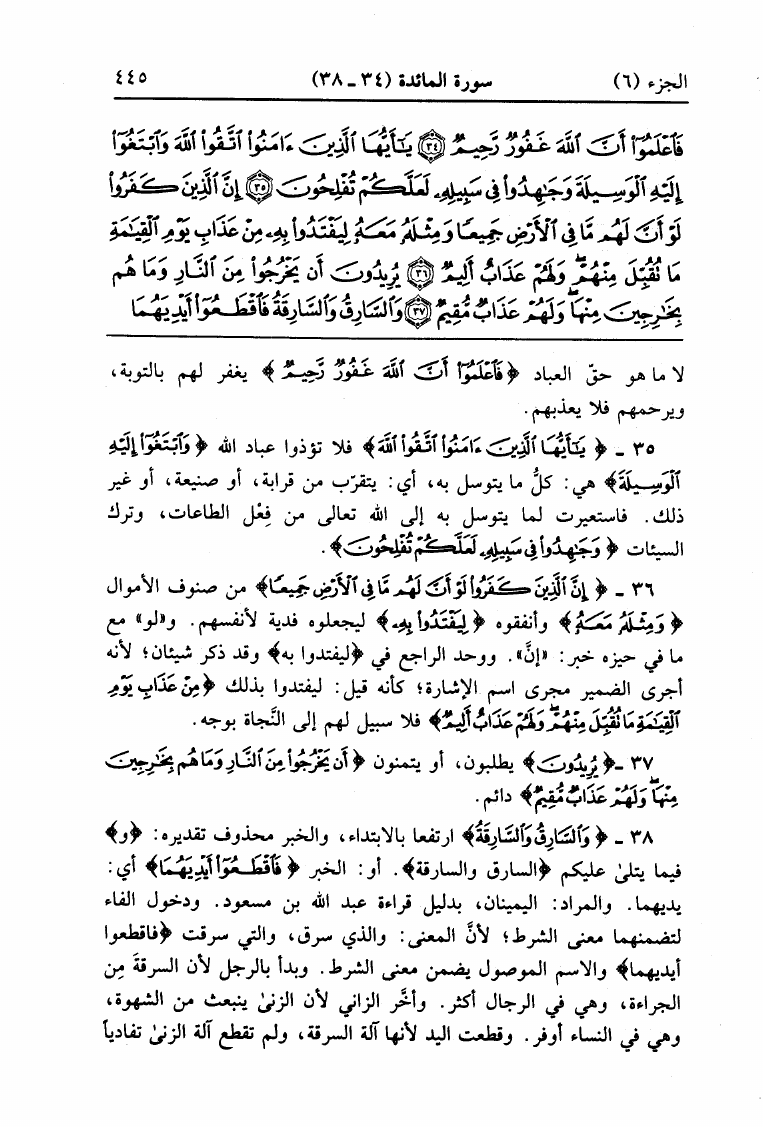 الجزء (٦) سورة المائدة (٣٤ ـ ٣٨) ٤٤٥
فَاعْلَمُوٓا۟ أَنَّ ٱللَّهَ غَفُورٌ رَّحِيمٌ ﴿٣٤﴾ يَٰٓأَيُّهَا ٱلَّذِينَ ءَامَنُوا۟ ٱتَّقُوا۟ ٱللَّهَ وَٱبْتَغُوٓا۟
إِلَيْهِ ٱلْوَسِيلَةَ وَجَٰهِدُوا۟ فِى سَبِيلِهِۦ لَعَلَّكُمْ تُفْلِحُونَ ﴿٣٥﴾ إِنَّ ٱلَّذِينَ كَفَرُوا۟
لَوْ أَنَّ لَهُم مَّا فِى ٱلْأَرْضِ جَمِيعًا وَمِثْلَهُۥ مَعَهُۥ لِيَفْتَدُوا۟ بِهِۦ مِنْ عَذَابِ يَوْمِ ٱلْقِيَٰمَةِ
مَا تُقُبِّلَ مِنْهُمْ ۖ وَلَهُمْ عَذَابٌ أَلِيمٌ ﴿٣٦﴾ يُرِيدُونَ أَن يَخْرُجُوا۟ مِنَ ٱلنَّارِ وَمَا هُم
بِخَٰرِجِينَ مِنْهَا ۖ وَلَهُمْ عَذَابٌ مُّقِيمٌ ﴿٣٧﴾ وَٱلسَّارِقُ وَٱلسَّارِقَةُ فَٱقْطَعُوٓا۟ أَيْدِيَهُمَا
لا ما هو حقّ العباد ﴿فَٱعْلَمُوٓا۟ أَنَّ ٱللَّهَ غَفُورٌ رَّحِيمٌ﴾ يغفر لهم بالتوبة،
ويرحمهم فلا يعذبهم.
٣٥ ـ ﴿يَٰٓأَيُّهَا ٱلَّذِينَ ءَامَنُوا۟ ٱتَّقُوا۟ ٱللَّهَ﴾ فلا تؤذوا عباد الله ﴿وَٱبْتَغُوٓا۟ إِلَيْهِ
ٱلْوَسِيلَةَ﴾ هي: كلُّ ما يتوسل به، أي: يتقرّب من قرابة، أو صنيعة، أو غير
ذلك. فاستعيرت لما يتوسل به إلى الله تعالى من فِعْل الطاعات، وترك
السيئات ﴿وَجَٰهِدُوا۟ فِى سَبِيلِهِۦ لَعَلَّكُمْ تُفْلِحُونَ﴾.
٣٦ ـ ﴿إِنَّ ٱلَّذِينَ كَفَرُوا۟ لَوْ أَنَّ لَهُم مَّا فِى ٱلْأَرْضِ جَمِيعًا﴾ من صنوف الأموال
﴿وَمِثْلَهُۥ مَعَهُۥ﴾ وأنفقوه ﴿لِيَفْتَدُوا۟ بِهِۦ﴾ ليجعلوه فدية لأنفسهم. و«لو» مع
ما في حيزه خبر: «إنَّ». ووحد الراجع في ﴿ليفتدوا به﴾ وقد ذكر شيئان؛ لأنه
أجرى الضمير مجرى اسم الإشارة؛ كأنه قيل: ليفتدوا بذلك ﴿مِنْ عَذَابِ يَوْمِ
ٱلْقِيَٰمَةِ مَا تُقُبِّلَ مِنْهُمْ ۖ وَلَهُمْ عَذَابٌ أَلِيمٌ﴾ فلا سبيل لهم إلى النَّجاة بوجه.
٣٧ ـ ﴿يُرِيدُونَ﴾ يطلبون، أو يتمنون ﴿أَن يَخْرُجُوا۟ مِنَ ٱلنَّارِ وَمَا هُم بِخَٰرِجِينَ
مِنْهَا ۖ وَلَهُمْ عَذَابٌ مُّقِيمٌ﴾ دائم.
٣٨ ـ ﴿وَٱلسَّارِقُ وَٱلسَّارِقَةُ﴾ ارتفعا بالابتداء، والخبر محذوف تقديره: ﴿و﴾
فيما يتلىٰ عليكم ﴿السارق والسارقة﴾. أو: الخبر ﴿فَٱقْطَعُوٓا۟ أَيْدِيَهُمَا﴾ أي:
يديهما. والمراد: اليمينان، بدليل قراءة عبد الله بن مسعود. ودخول الفاء
لتضمنهما معنى الشرط؛ لأنَّ المعنى: والذي سرق، والتي سرقت ﴿فاقطعوا
أيديهما﴾ والاسم الموصول يضمن معنى الشرط. وبدأ بالرجل لأن السرقةَ مِن
الجراءة، وهي في الرجال أكثر. وأخَّر الزاني لأن الزنىٰ ينبعث من الشهوة،
وهي في النساء أوفر. وقطعت اليد لأنها آلة السرقة، ولم تقطع آلة الزنىٰ تفادياً